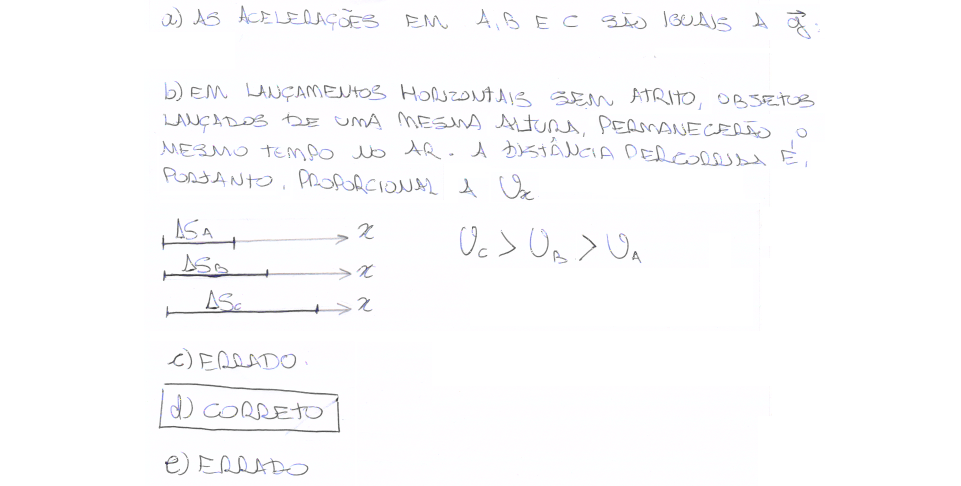 a) AS ACELERAÇÕES EM A, B E C SÃO IGUAIS A g⃗.
b) EM LANÇAMENTOS HORIZONTAIS SEM ATRITO, OBJETOS
LANÇADOS DE UMA MESMA ALTURA, PERMANECERÃO O
MESMO TEMPO NO AR. A DISTÂNCIA PERCORRIDA É,
PORTANTO, PROPORCIONAL A Vx
ΔSA x
ΔSB x
ΔSC x
Vc > VB > VA
c) ERRADO.
d) CORRETO
e) ERRADO